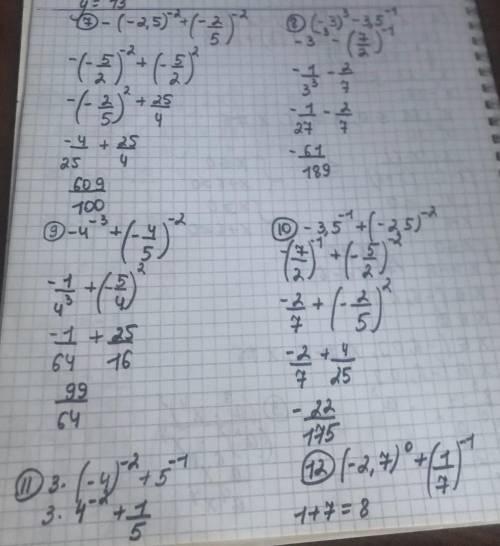 y = 13
⑦ -(-2,5)^-2 + (-2/5)^-2
-(-5/2)^-2 + (-5/2)^2
-(-2/5)^2 + 25/4
-4/25 + 25/4
609/100
⑧ (-3)^3 - 3,5^-1
-3^-3 - (7/2)^-1
-1/3^3 - 2/7
-1/27 - 2/7
-61/189
⑨ -4^-3 + (-4/5)^-2
-1/4^3 + (-5/4)^2
-1/64 + 25/16
99/64
⑩ -3,5^-1 + (-2,5)^-2
-(7/2)^-1 + (-5/2)^-2
-2/7 + (-2/5)^2
-2/7 + 4/25
-22/175
⑪ 3·(-4)^-2 + 5^-1
3·4^-2 + 1/5
⑫ (-2,7)^0 + (1/7)^-1
1+7=8